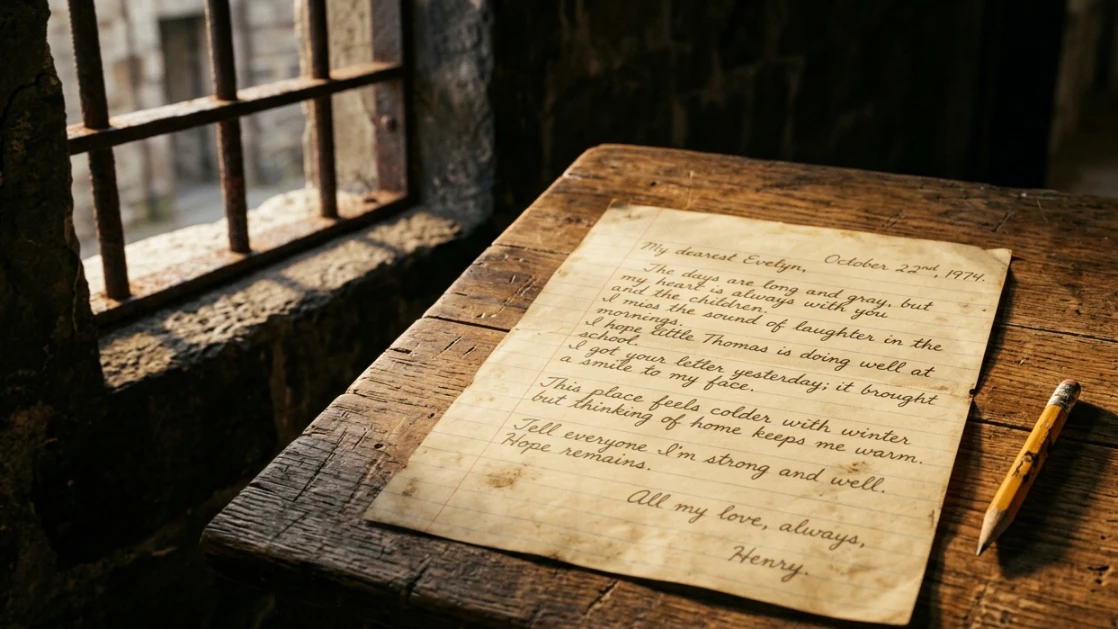 My dearest Evelyn,
October 22nd, 1974.
The days are long and gray, but
my heart is always with you
and the children.
I miss the sound of laughter in the
mornings.
I hope little Thomas is doing well at
school.
I got your letter yesterday; it brought
a smile to my face.
This place feels colder with winter
but thinking of home keeps me warm.
Tell everyone I'm strong and well.
Hope remains.
All my love, always,
Henry.